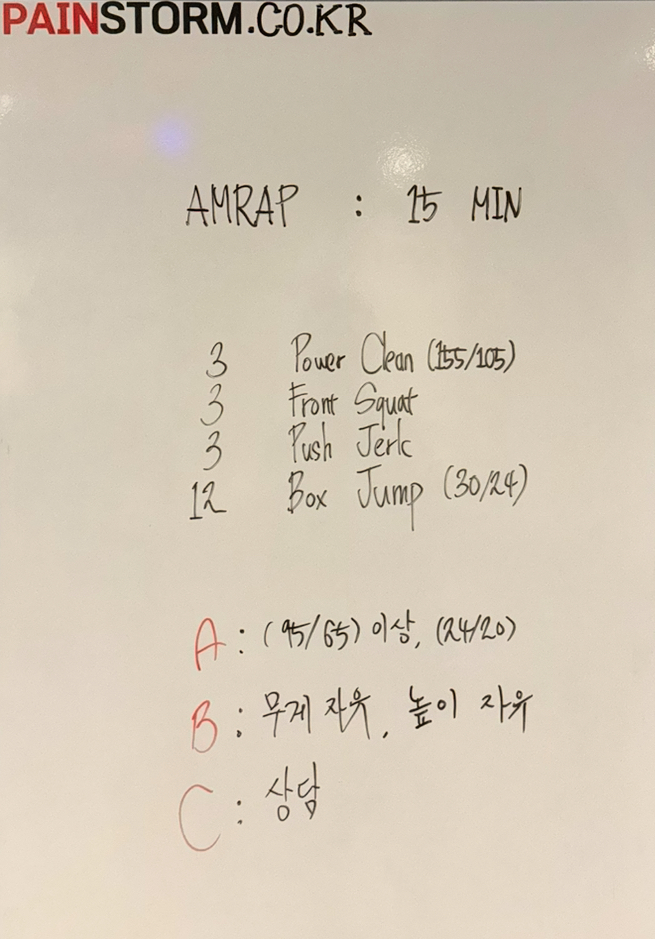 PAINSTORM.CO.KR
AMRAP : 15 MIN
3 Power Clean (155/105)
3 Front Squat
3 Push Jerk
12 Box Jump (30/24)
A : (95/65) 이상, (24/20)
B : 무게 자유, 높이 자유
C : 상담